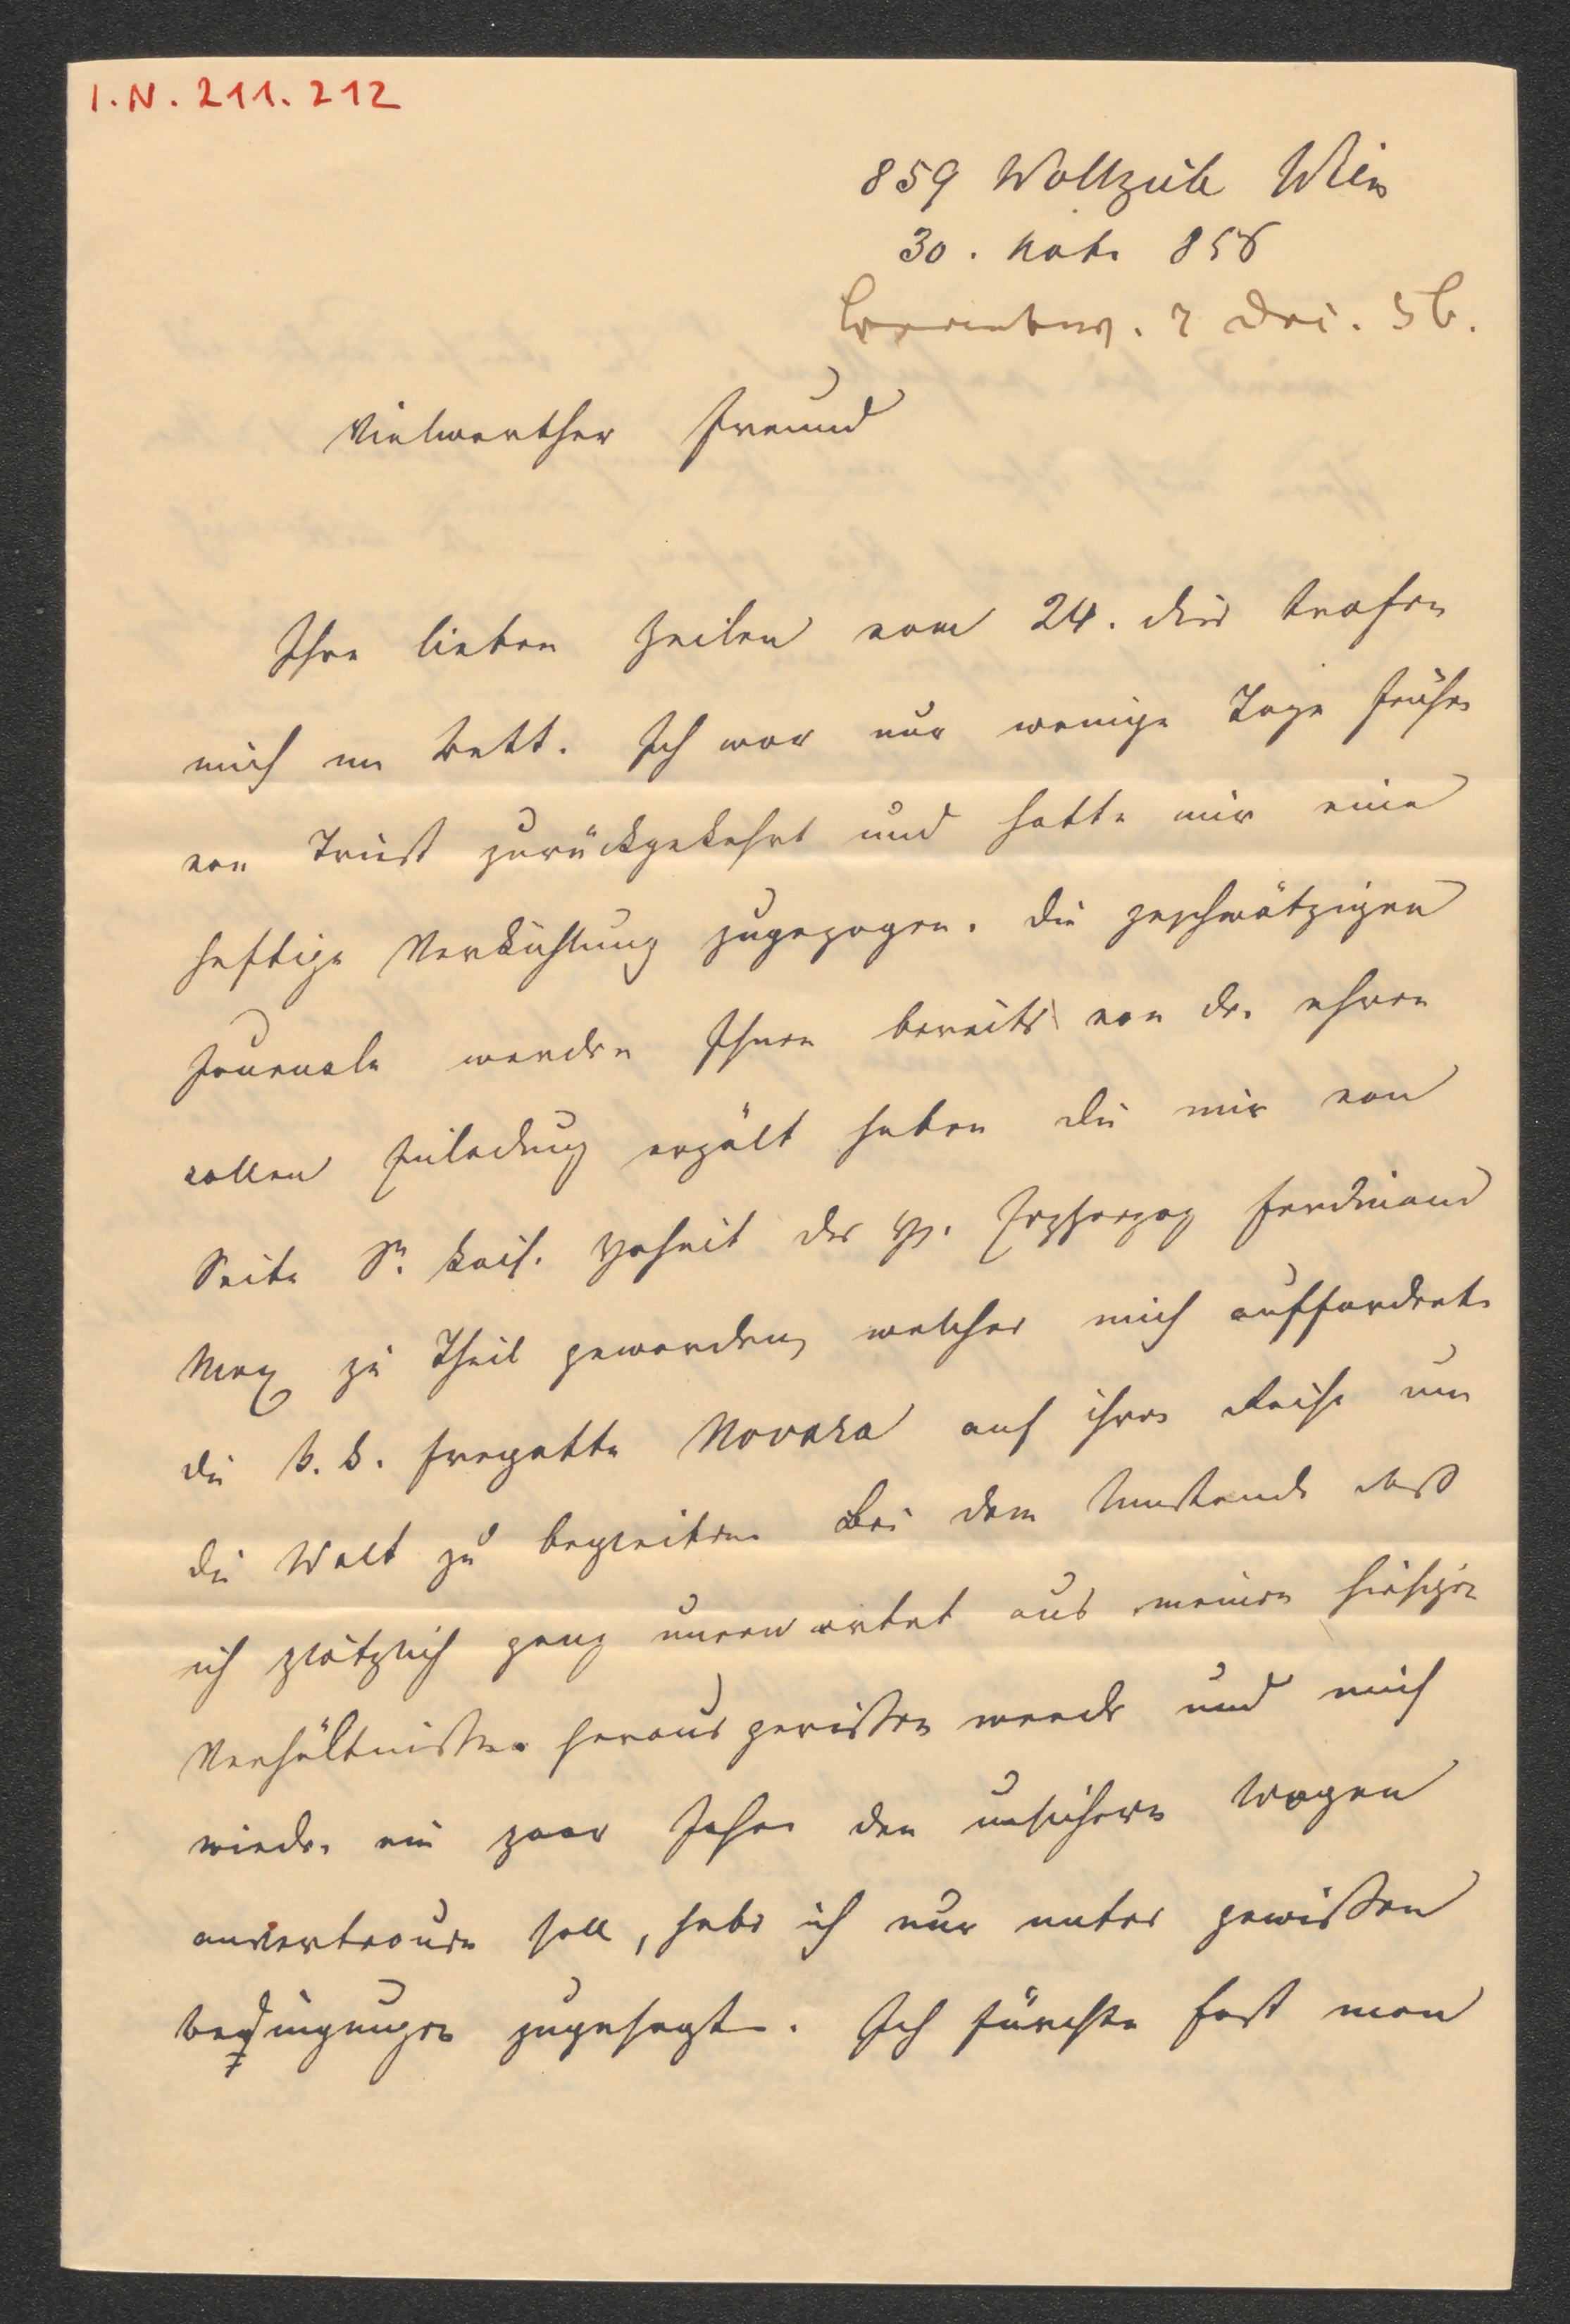 I.N. 211.212
859 Wollzeile Wien
30. Nob. 856
2 Dec. 56.
Vielwerther Freund
Ihre lieben Zeilen vom 24. dies trafen
mich im Bett. Ich war nur wenige Tage früher
von Triest zurückgekehrt und hatte mir eine
heftige Verkühlung zugezogen. Die geschwätzigen
Journale werden Ihnen bereits von der ehren
vollen Einladung erzält haben die mir von
Seite Sr. kais. Hoheit des H. Erzherzog Ferdinand
Max zu Theil geworden, welcher mich aufforderte
die k. k. Fregatte Novara auf ihrer Reise um
die Welt zu begleiten. Bei dem Umstande daß
ich plötzlich ganz unerwartet aus meinen hiesigen
Verhältnissen heraus gerissen werde und mich
wieder ein paar Jahre den unsichern Wogen
anvertrauen soll, habe ich nur unter gewissen
Bedingungen zugesagt. Ich fürchte fast man